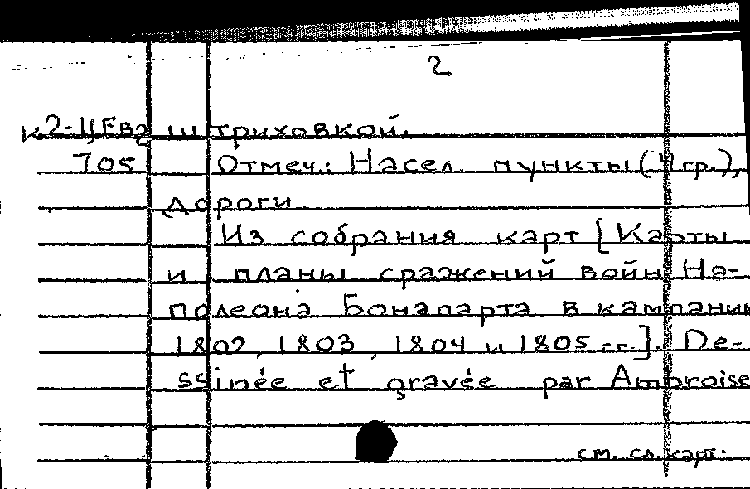 2
К2-ЦЕвр штриховкой.
705 Отмеч.: Насел. пункты (4 гр.),
дороги.
Из собрания карт [Карты
и планы сражений войн На-
полеона Бонапарта в кампании
1802, 1803, 1804 и 1805 гг.]. De-
ssinée et gravée par Ambroise
см. сл. карт.